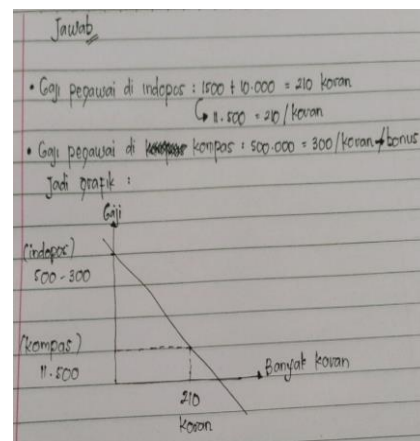 Jawab
• Gaji pegawai di indopos : 1500 + 10.000 = 210 koran
↳ 11.500 = 210/koran
• Gaji pegawai di kompas : 500.000 = 300/koran → bonus
Jadi grafik :
Gaji
(indopos)
500 - 300
(kompas)
11.500
Banyak koran
210
koran